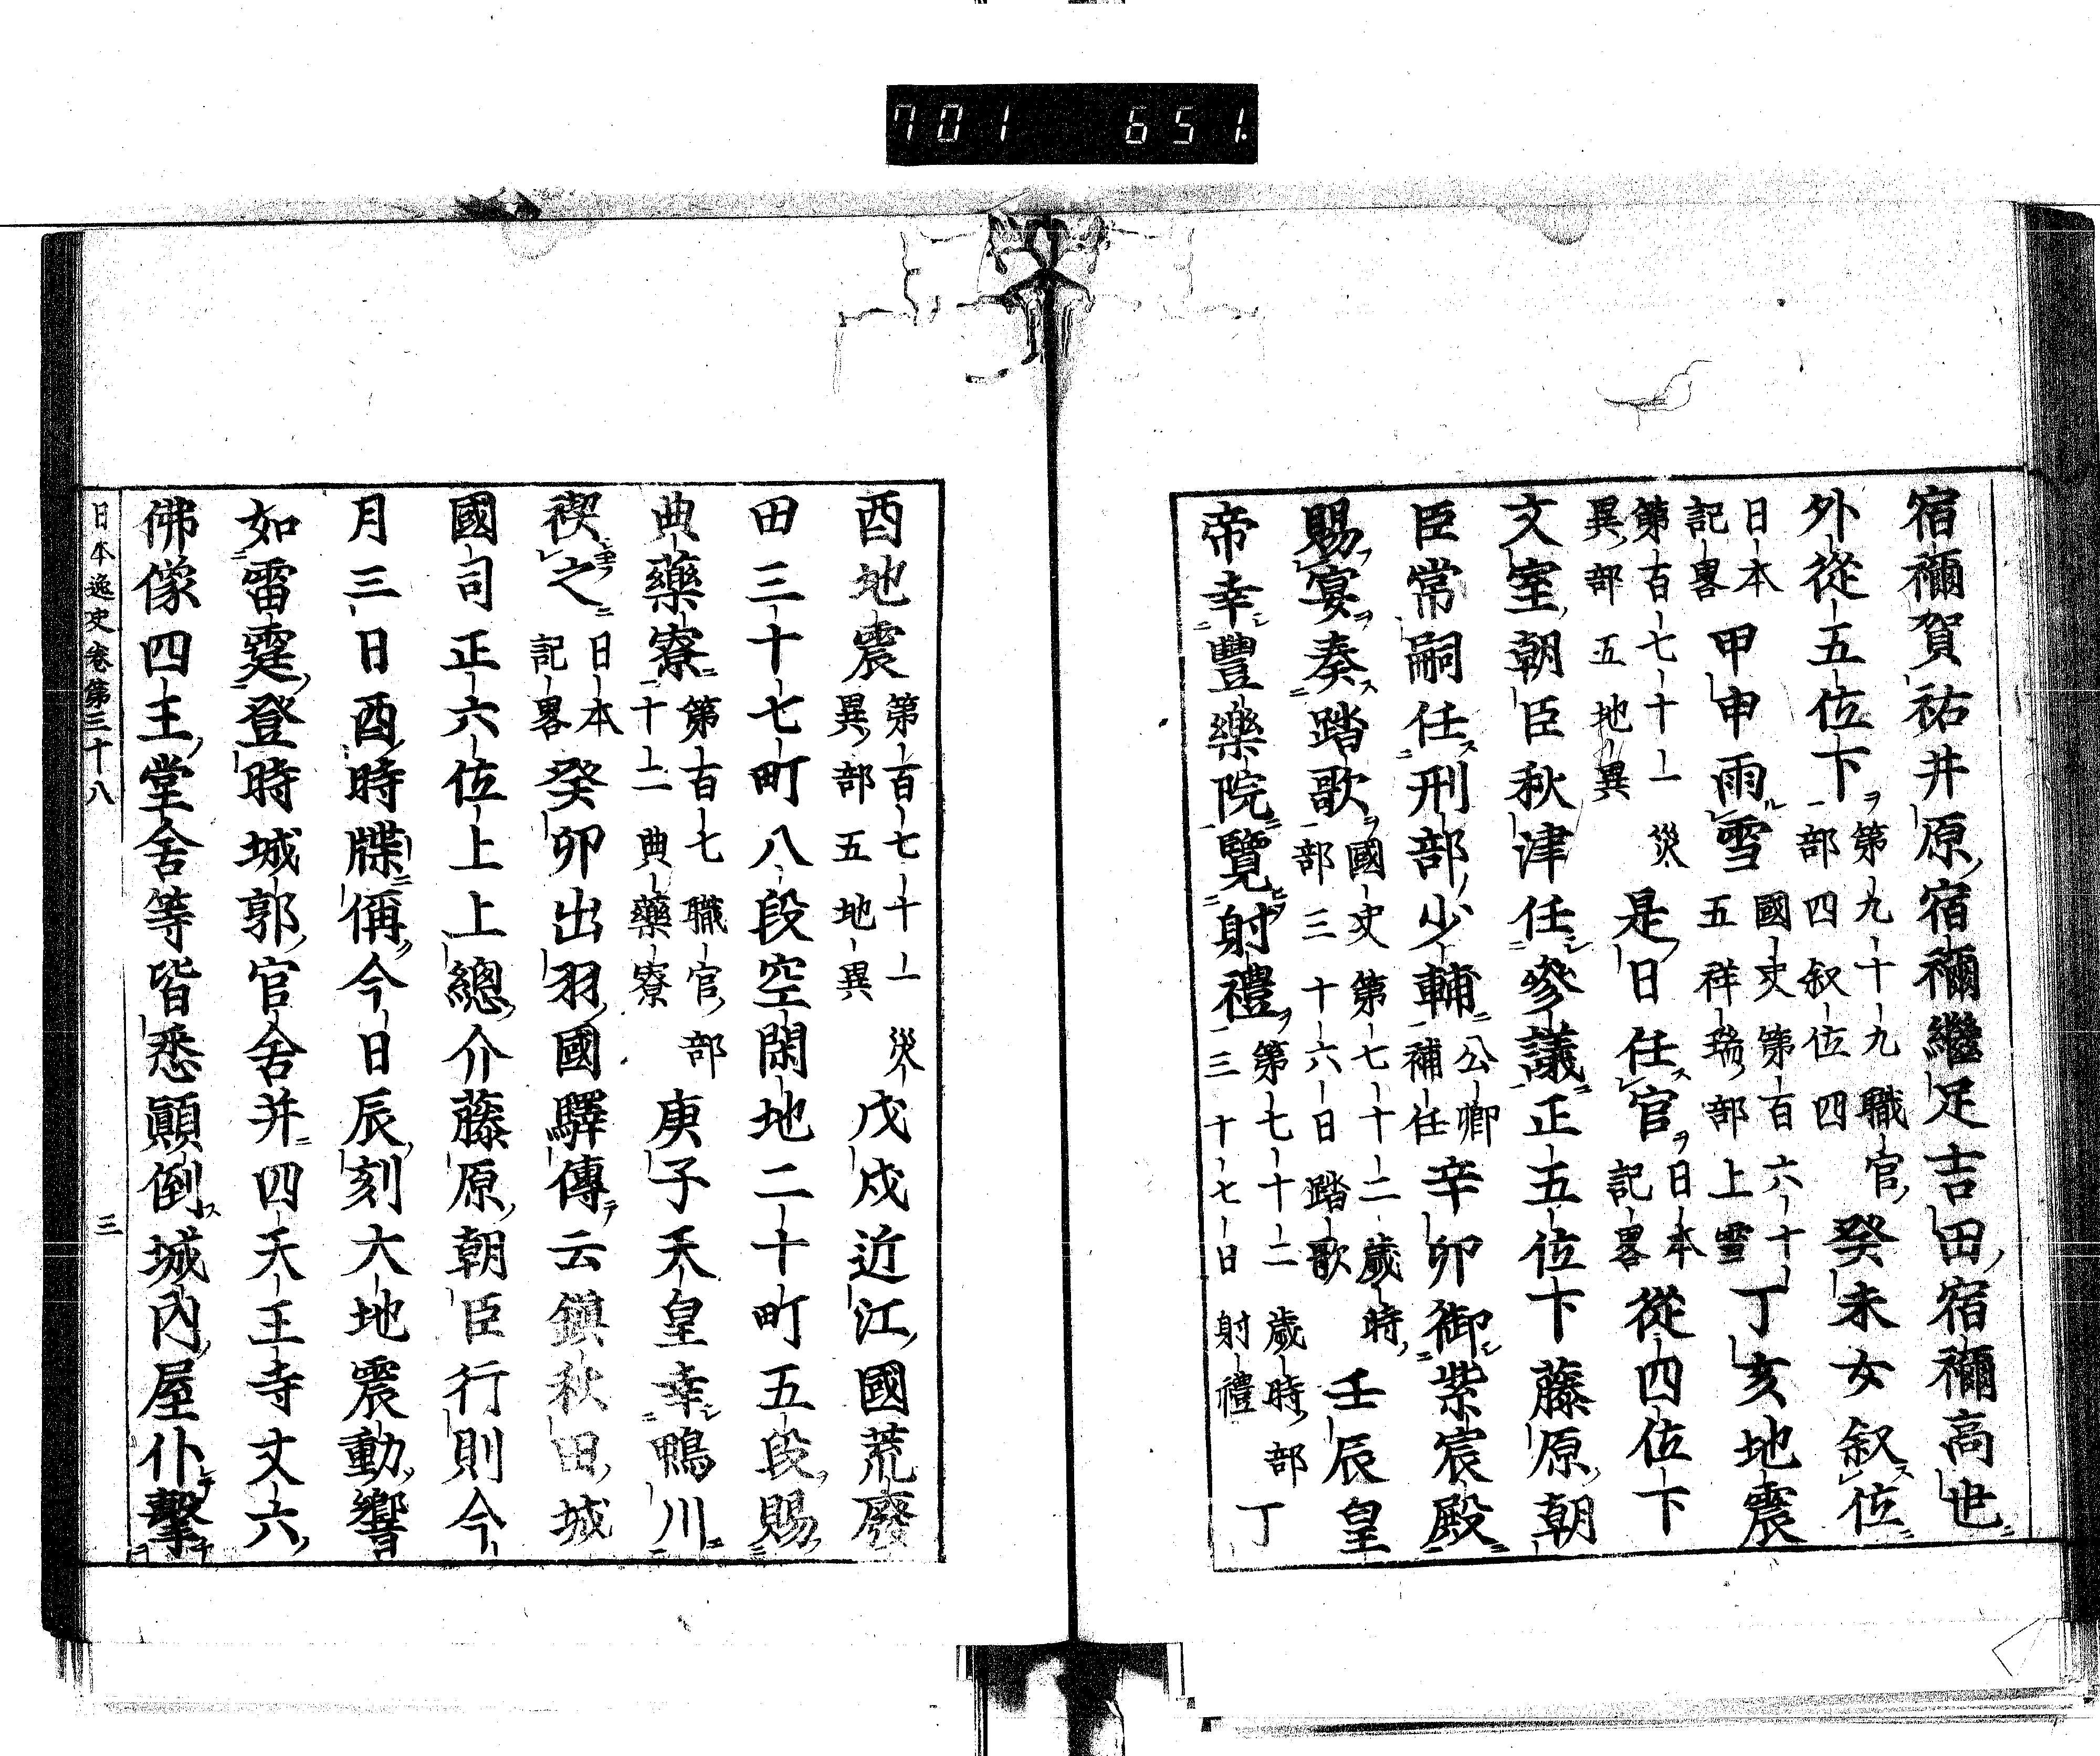 701 651.
宿禰賀祐井原宿禰繼足吉田宿禰高世
外從五位下第九十九職官部四叙位四癸未女叙位
日本記畧甲申雨雪國史第百六十五祥瑞部上雪丁亥地震
第百七十一災異部五地異是日任官日本記畧從四位下
文室朝臣秋津任參議正五位下藤原朝
臣常嗣任刑部少輔公卿補任辛卯御紫宸殿
賜宴奏踏歌國史第七十二歲時部三十六日踏歌壬辰皇
帝幸豐樂院覽射禮第七十二歲時部三十七日射禮丁
酉地震第百七十一災異部五地異戊戌近江國荒廢
田三十七町八段空閑地二十町五段賜
典藥寮第百七職官部十二典藥寮庚子天皇幸鴨川
禊之日本記畧癸卯出羽國驛傳云鎮秋田城
國司正六位上上總介藤原朝臣行則今
月三日酉時牒偁今日辰刻大地震動響
如雷霆登時城郭官舍并四天王寺丈六
佛像四王堂舍等皆悉顛倒城內屋仆擊
日本逸史卷第三十八 三